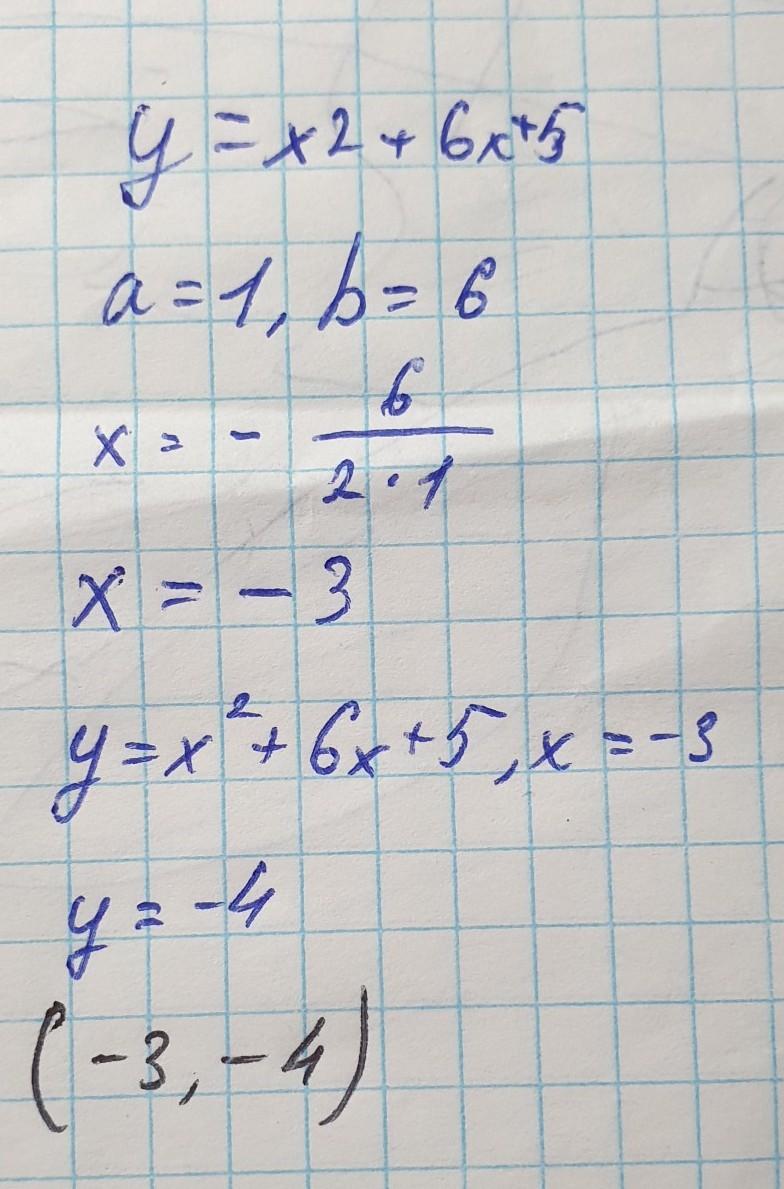 y = x2 + 6x+5
a = 1, b = 6
x = - 6/(2·1)
x = - 3
y = x² + 6x + 5, x = -3
y = -4
(-3, -4)